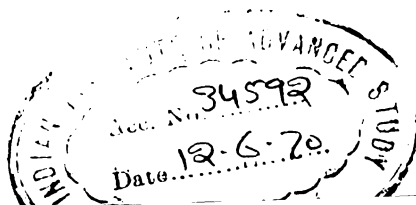 INDIAN INSTITUTE OF ADVANCED STUDY
Acc. No. 34592
Date 12.6.70.